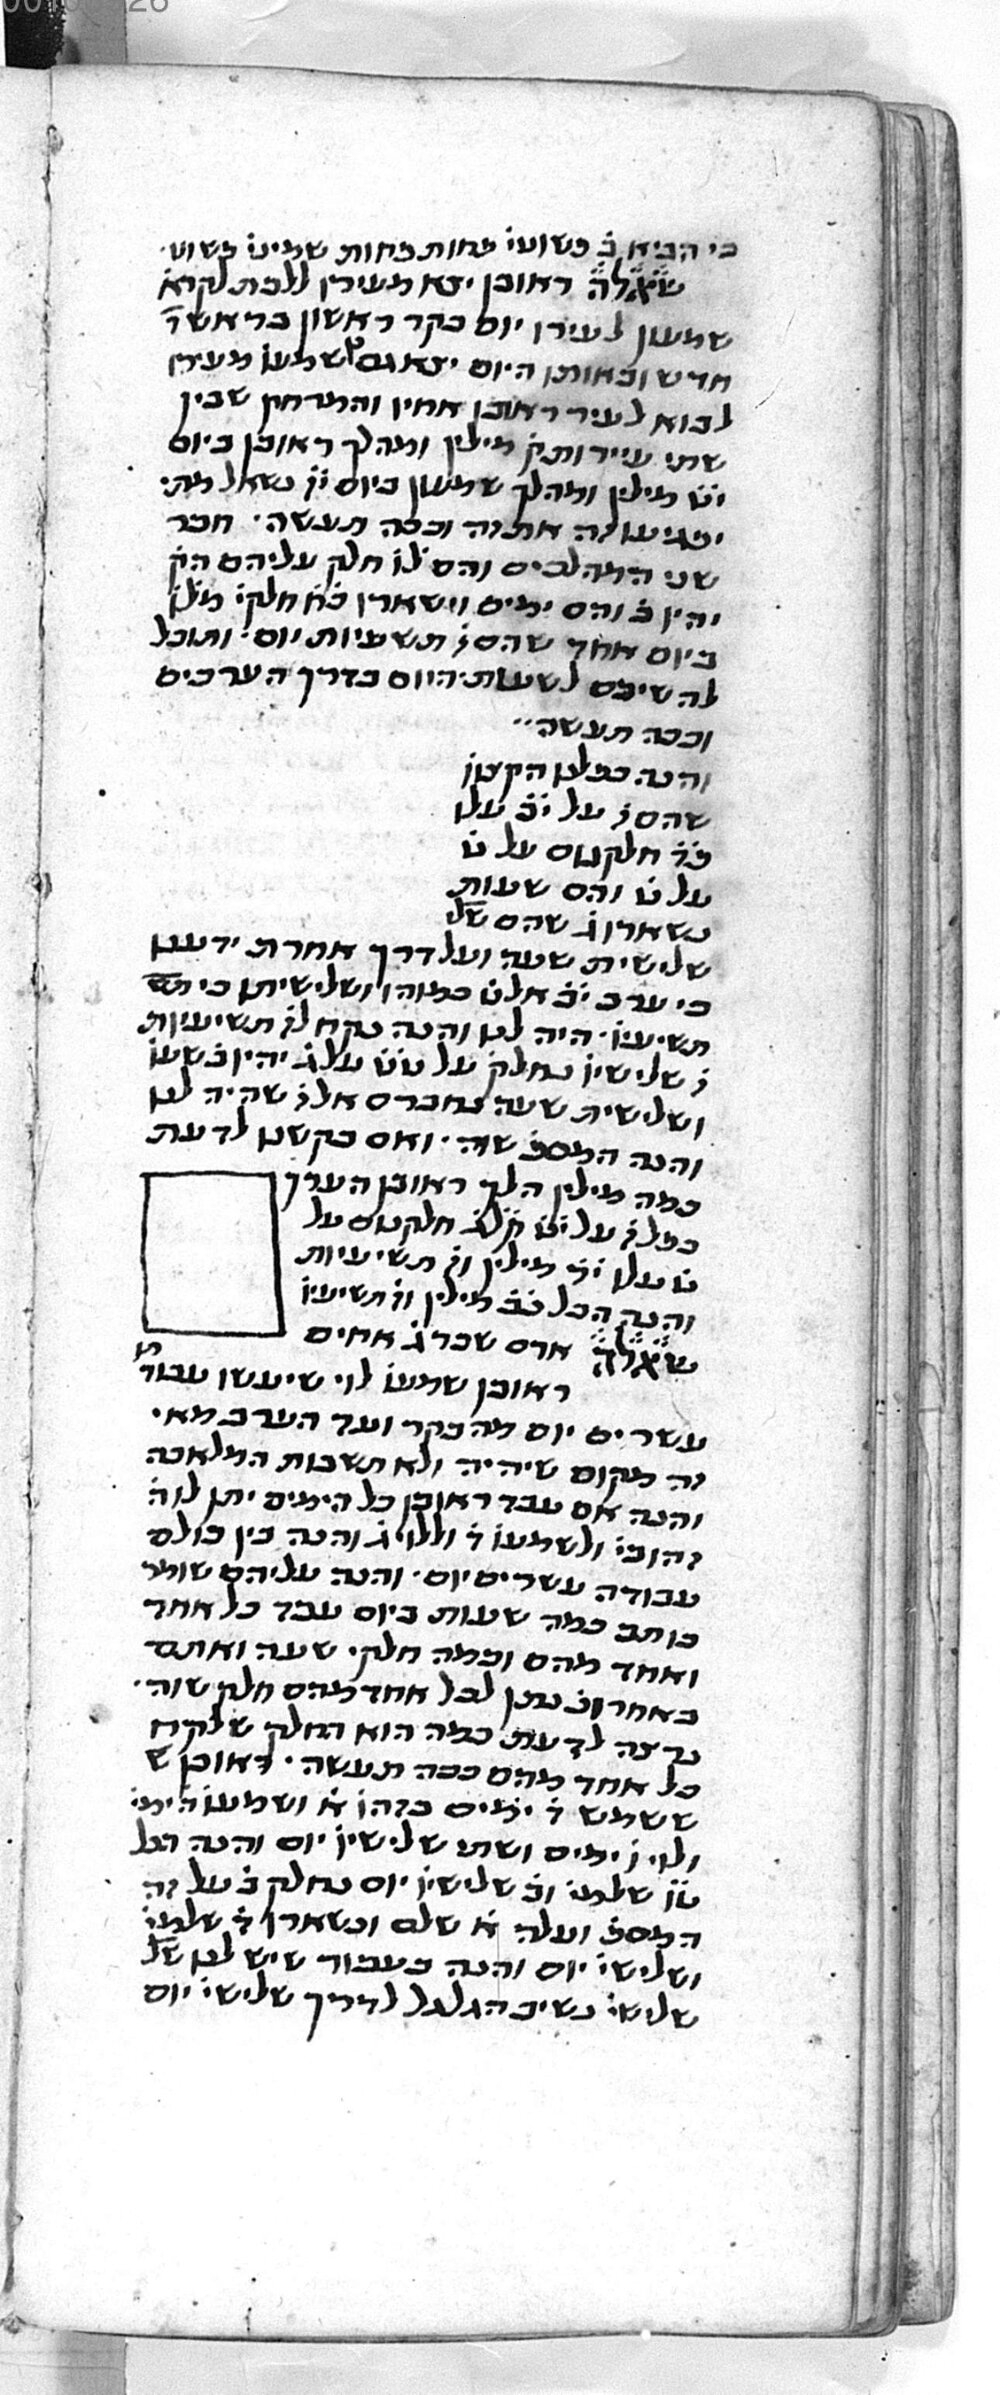 כי הביא ב̇ בשוערי פחות פחות שמינו̇ פשוט
שאלה ראובן יצא מעירו ללכת לקרא̇
שמעון לעירו יום בקר ראשון בראש
חדש ובאותו היום יצא גם שמעו̇ מעירו
לבוא לעיר ראובן אחיו והמרחק שבין
שתי עיירות ק̇ מילין ומהלך ראובן ביום
מילין ומהלך שמעון ביום י̇ז̇ נשאל מתי
יפגיעו זה את זה וככה תעשה. חבר
שני המהלכים והם ל̇ו̇ חלק עליהם הק̇
יהיו ב̇ והם ימים וישארו כ̇ח̇ חלקי̇ מל̇ו̇
ביום אחד שהם ז̇ תשעיות יום. ותוכל
להשיבם לשעות היום בדרך הערכים
וככה תעשה
והנה כפלנו הקצו̇ו̇
שהם ז̇ על י̇ב̇ עלו
פ̇ד̇ חלקנום על ט̇
עלו ט̇ והם שעות
נשארו ג̇ שהם של
שלישית שעה ועל דרך אחרת ידענו
כי ערב י̇ב̇ אל ט̇ כמוהו ושלישיתו כי תש
תשיעיו̇. היה לנו והנה נקח לז̇ תשיעיות
ז̇ שלישיו̇ נחלק̇ על ג̇ יהיו ב̇ שעו̇
ושלישית שעה נחברם אל ז̇ שהיה לנו
והנה המספ̇ שוה. ואם בקשנו לדעת
כמה מילין הלך ראובן הערך
כפל ז̇ על י̇ט̇ ק̇ל̇ג̇ חלקנום על
ט̇ עלו י̇ד̇ מילין וז̇ תשיעיות
והנה הכל נ̇ב̇ מילין וז̇ תשיעיו̇
שאלה אדם שכר ג̇ אחים
ראובן שמעו̇ לוי שיעשו עבודתו
עשרים יום מהבקר ועד הערב מאי
זה מקום שיהיה ולא תשבות המלאכה
והנה אם עבד ראובן כל הימים יתן לו ה̇
זהובי̇ ולשמעו̇ ד̇ וללוי ג̇ והנה בין כולם
עבודה עשרים יום. והנה עליהם שומר
כותב כמה שעות ביום עבד כל אחד
ואחד מהם וכמה חלקי שעה ואתם
באחרונ̇ נתן לכל אחד מהם חלק שוה.
נרצה לדעת כמה הוא החלק שלקח
כל אחד מהם ככה תעשה. ראובן ש
ששמש ד̇ ימים בזהו̇ א̇ ושמעו̇ ה̇ ימי̇
ולוי ו̇ ימים ושתי שלישיו̇ יום והנה הכל
ט̇ו̇ שלמי̇ וב̇ שלישיו̇ יום נחלק כ̇ על זה
המספ̇ ועלה א̇ שלם ונשארו ד̇ שלמי̇
ושלישי̇ יום והנה בעבור שיש לנו של
שלישי̇ נשיב הגלגל לדרך שלישי̇ יום